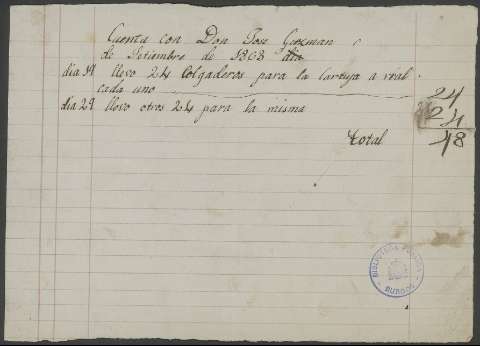 Cuenta con Don Jose Guzman
de Setiembre de 1868 dia
dia 14 llevo 24 Colgaderos para la Cartuja a real
cada uno 24
dia 29 llevo otros 24 para la misma 24
total 48
BIBLIOTECA PUBLICA
BURGOS